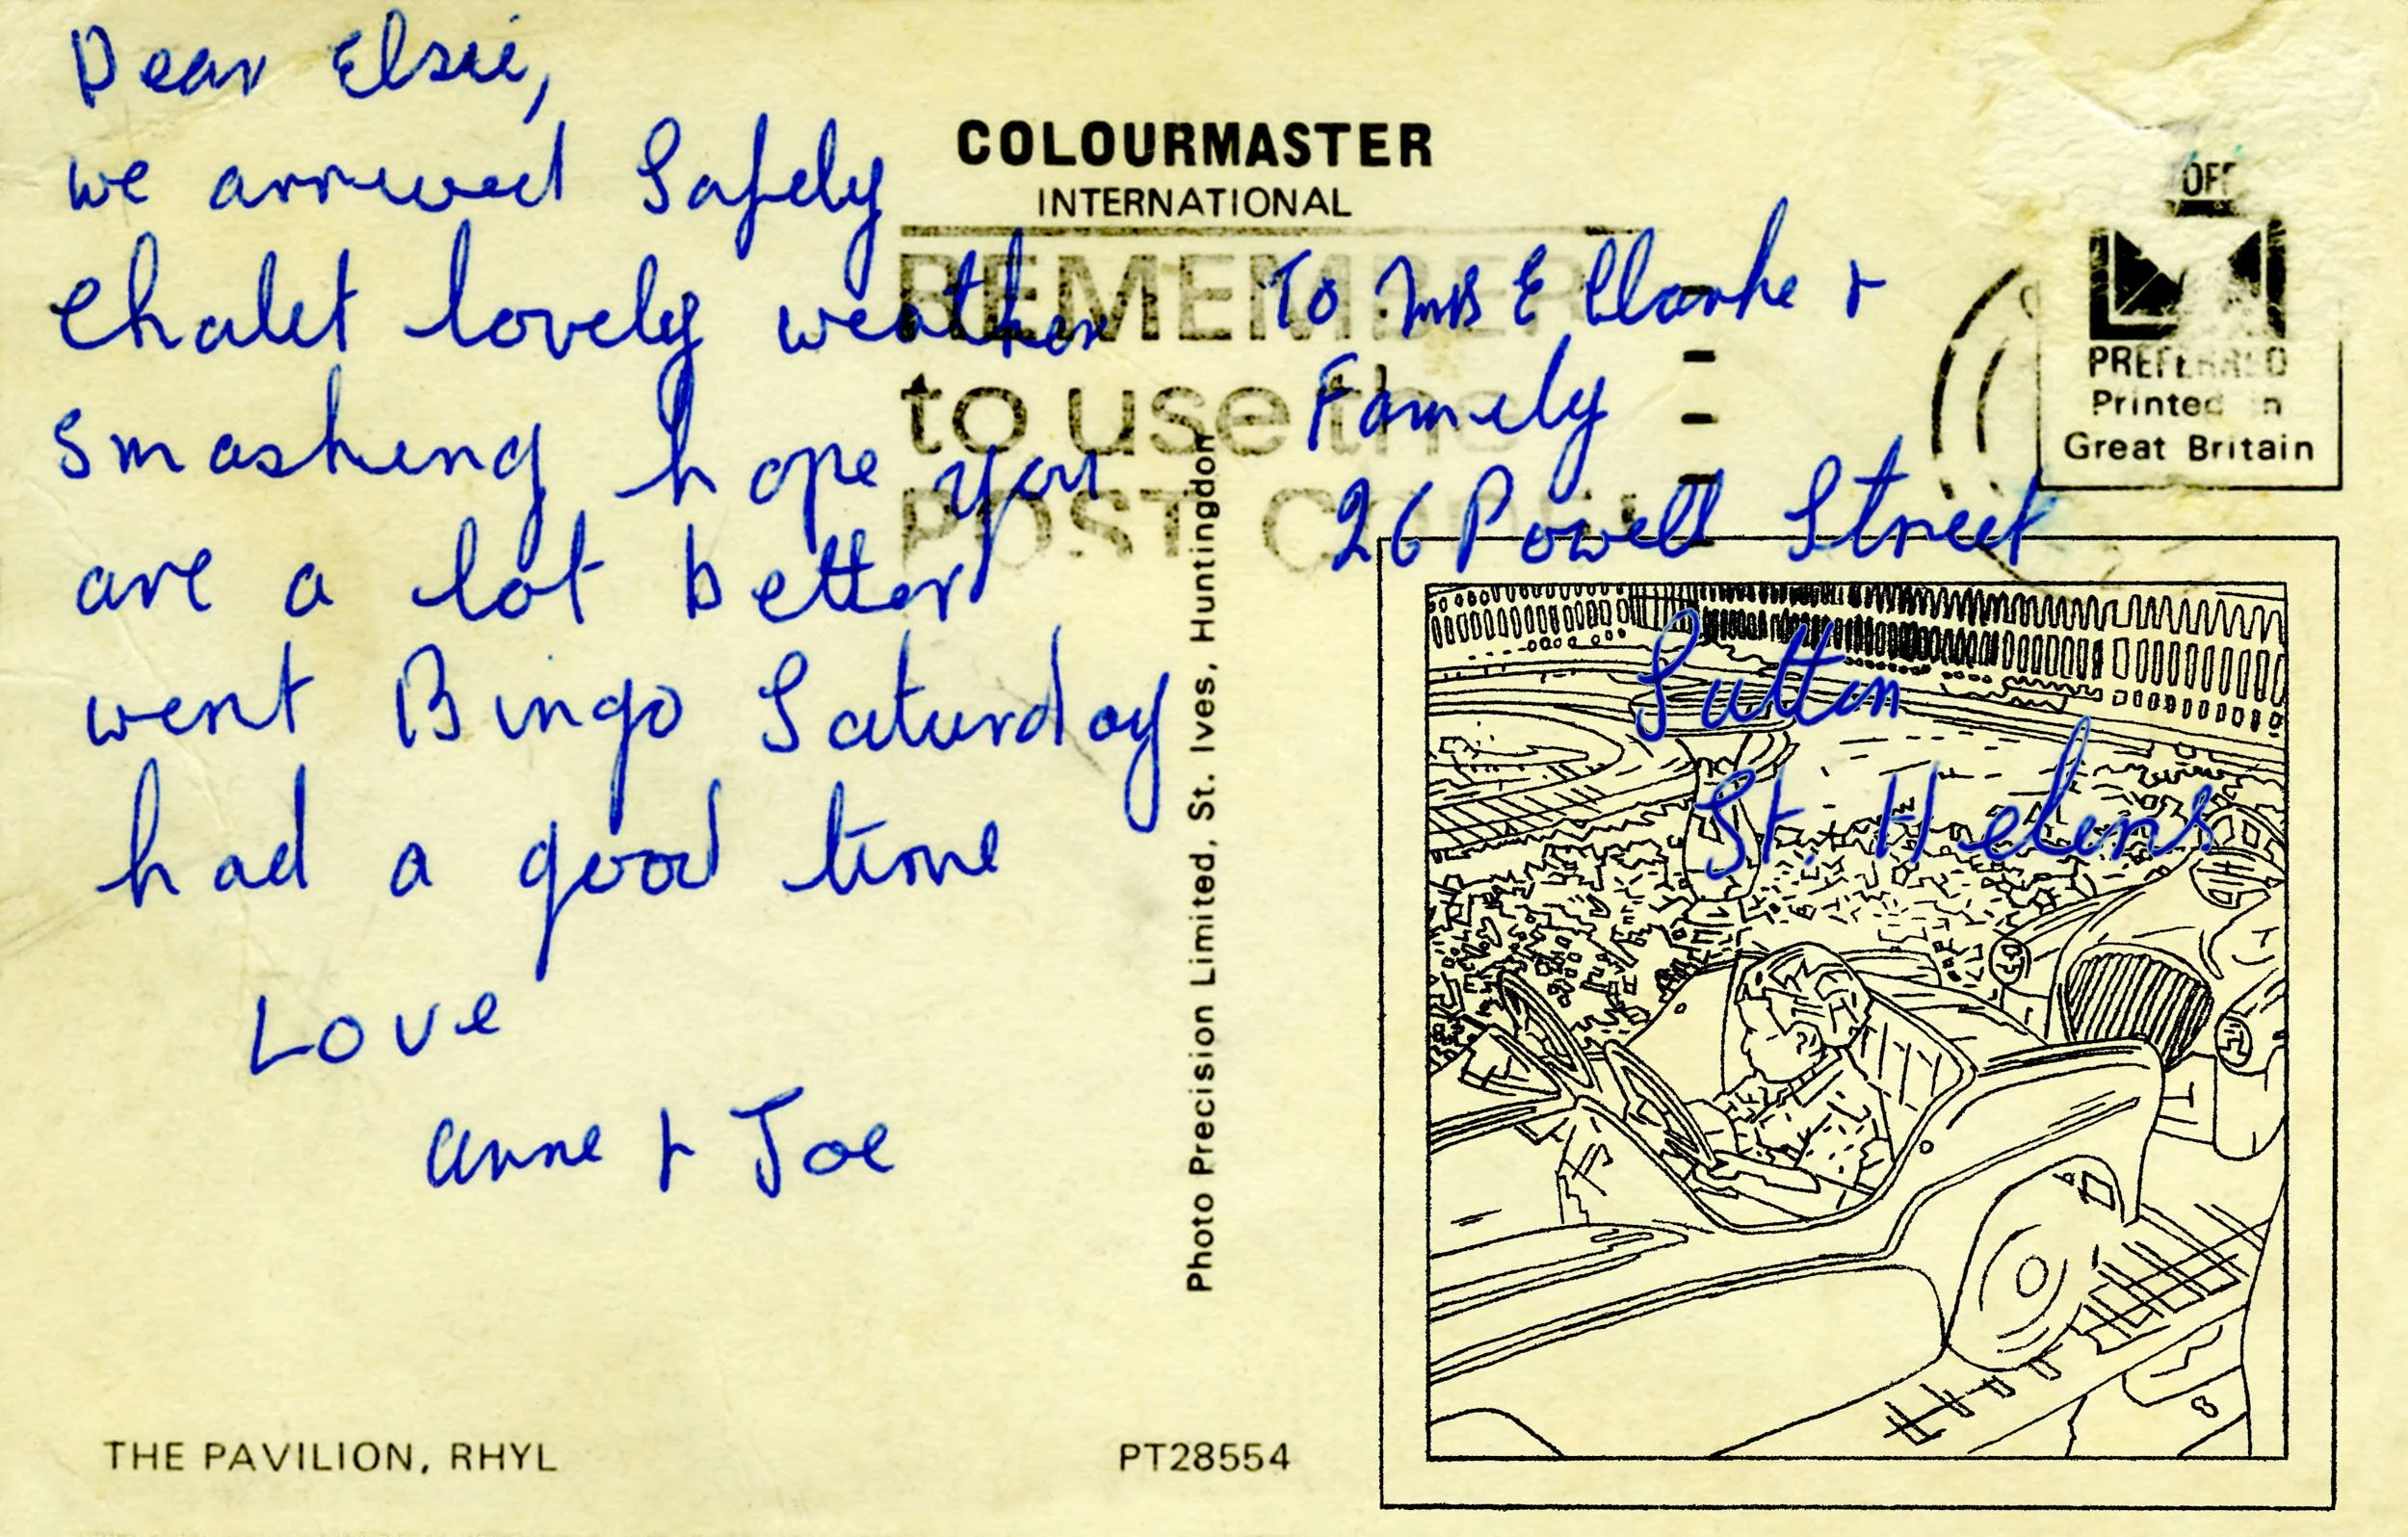 Dear Elsie,
we arrived Safely
Chalet lovely weather
smashing hope you
are a lot better
went Bingo Saturday
had a good time
Love
Anne + Joe
THE PAVILION, RHYL
COLOURMASTER
INTERNATIONAL
REMEMBER
to use the
POST
Photo Precision Limited, St. Ives, Huntingdon
PT28554
To Mrs E Clarke +
Family
26 Powell Street
Sutton
St. Helens
PREFERRED
Printed in
Great Britain